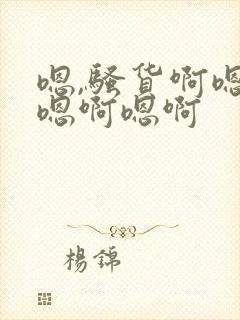 嗯,骚货啊嗯
嗯啊嗯啊
楊錦